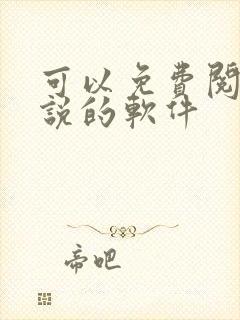 可以免費閱
說的軟件
帝吧